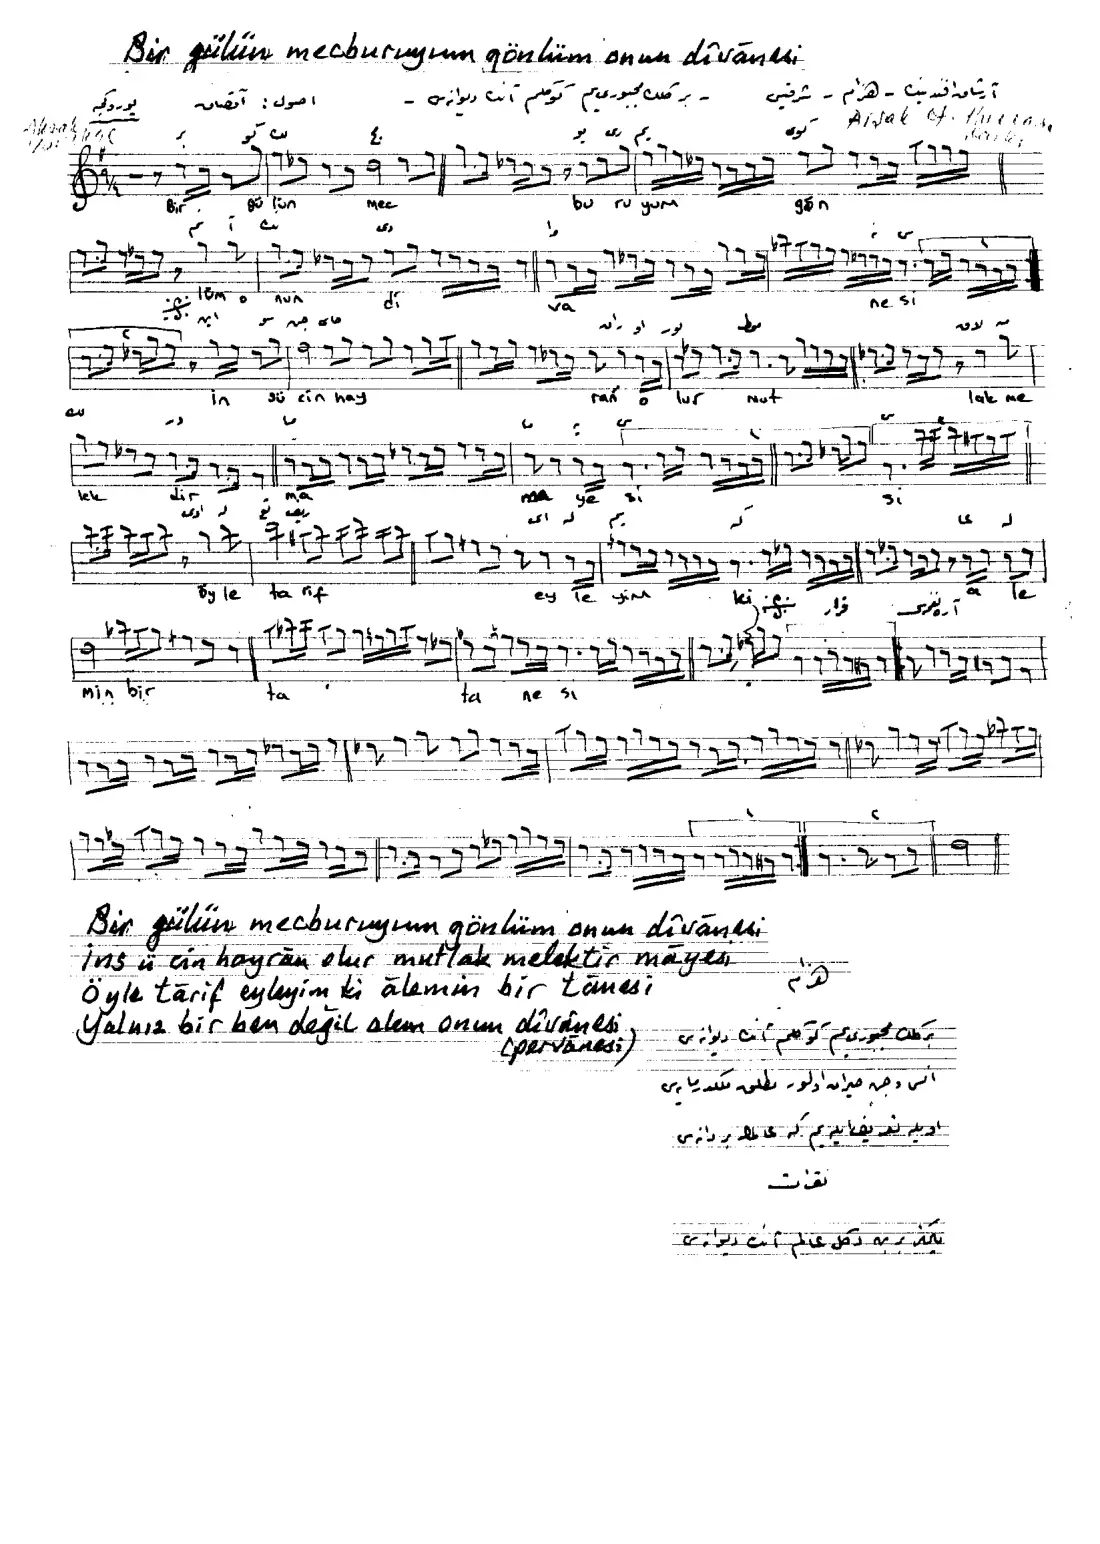 Bir gülün mecburuyum gönlüm onun dîvânesi
اصول : آقصاق
Bir gü lün mec bu ru yum gön
lüm o nun dî va ne si
in sü cin hay ran o lur mut lak me
lek dir ma ma ye si si
öy le ta rif ey le yim ki a le
min bir ta ta ne si
Bir gülün mecburuyum gönlüm onun dîvânesi
İns ü cin hayrân olur mutlak melektir mâyesi
Öyle târif eyleyim ki âlemin bir tânesi
Yalnız bir ben değil alem onun dîvânesi
(pervânesi)
هزام
بر گلك مجبوری یم كوكلم آنك دیوانه سی
انس و جن حیران اولور مطلق ملكدر مایه سی
اویله تعریف ایله یم كه عالمك بر دانه سی
نقرات
یالكز بر بن دكل عالم آنك دیوانه سی